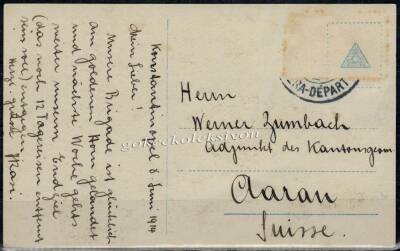 Konstantinopel 8 Juni 1914
Mein Lieber!
Unsere Brigade ist glücklich
am goldenen Horn gelandet
und nächste Woche gehts
weiter unserem Endziel
(das noch 12 Tagereisen entfernt
sein soll) entgegen.
Herzl. grüsst
RA-DÉPART
Herrn
Werner Zumbach
Adjunkt des Kantonsgeom
Aarau
Suisse.